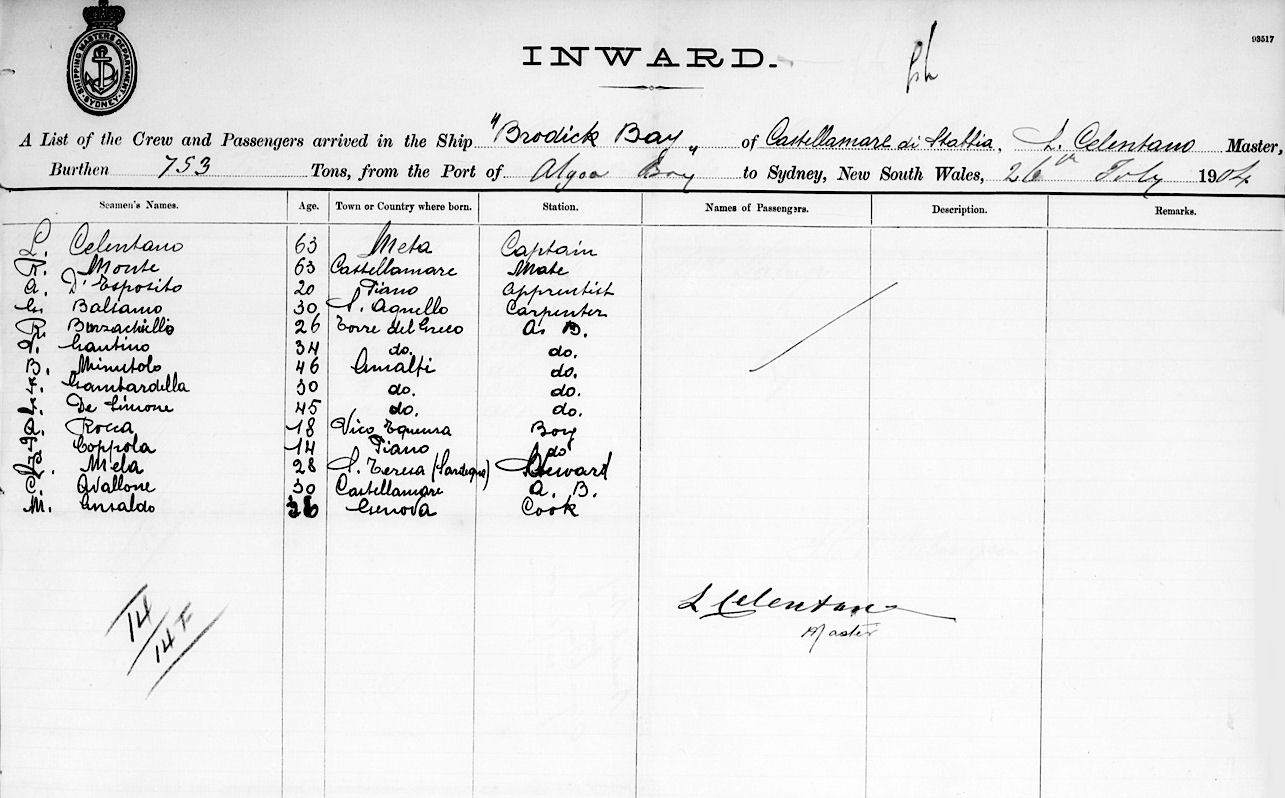 SHIPPING MASTERS DEPARTMENT SYDNEY
93517
INWARD.
A List of the Crew and Passengers arrived in the Ship "Brodick Bay" of Castellamare di Stabbia, L. Celentano Master,
Burthen 753 Tons, from the Port of Algoa Bay to Sydney, New South Wales, 26th July 1904
Seamen's Names. Age. Town or Country where born. Station. Names of Passengers. Description. Remarks.
L. Celentano 63 Meta Captain
R. Monte 63 Castellamare Mate
A. D'Esposito 20 Piano Apprentist
Balsamo 30 S. Agnello Carpenter
R. 26 Torre del Greco A. B.
Gantino 34 do. do.
B. Minutolo 46 Amalfi do.
F. Gambardella 30 do. do.
De Simone 45 do. do.
Rocca 18 Vico Equensa Boy
Coppola 14 Piano do
Mela 28 S. Teresa (Sardegna) Steward
C. Avallone 30 Castellamare A. B.
M. Ansaldo 36 Genova Cook
14
14 F
L Celentano
Master